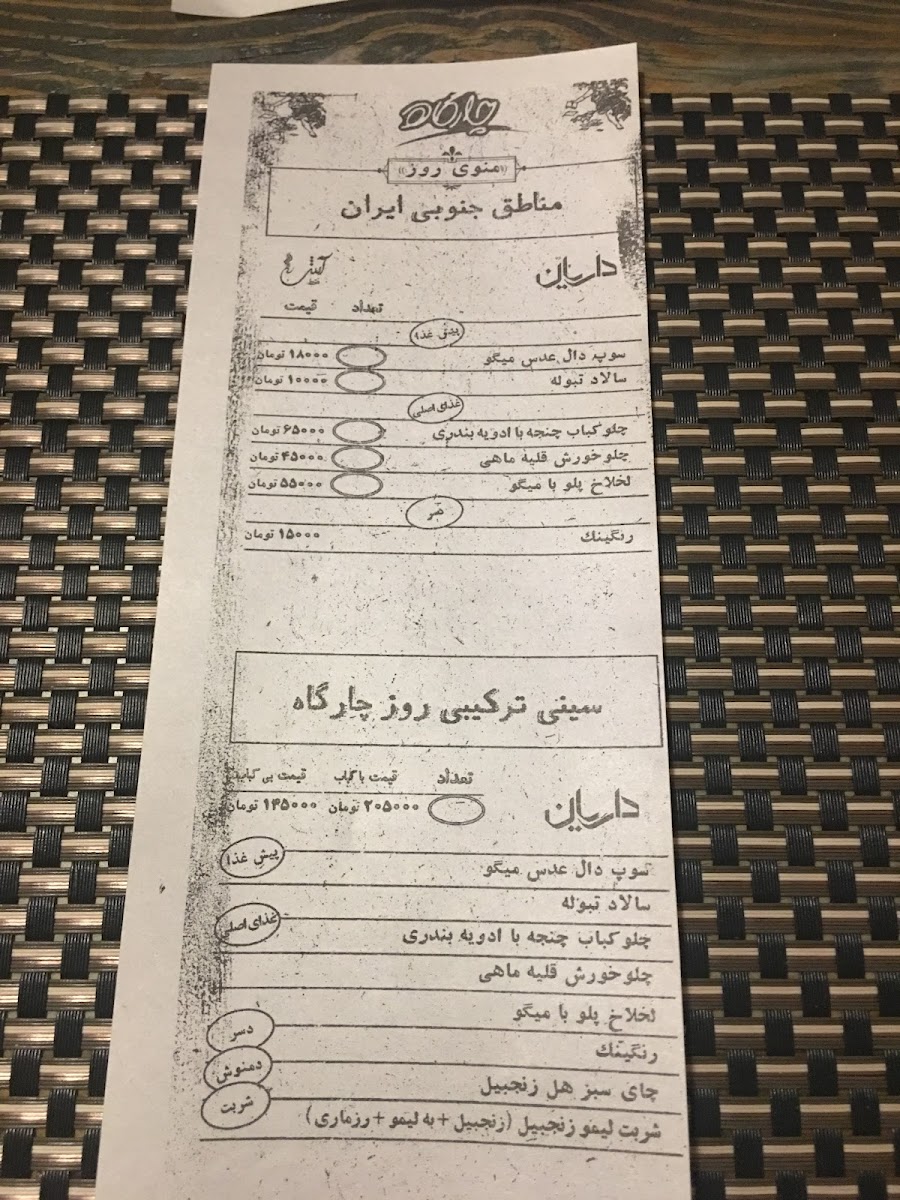 چارگاه
«منوی روز»
مناطق جنوبی ایران
داریان
تعداد قیمت
پیش غذا
سوپ دال عدس میگو ۱۸۰۰۰ تومان
سالاد تبوله ۱۰۰۰۰ تومان
غذای اصلی
چلوکباب چنجه با ادویه بندری ۶۵۰۰۰ تومان
چلوخورش قلیه ماهی ۴۵۰۰۰ تومان
لخلاخ پلو با میگو ۵۵۰۰۰ تومان
رنگینك ۱۵۰۰۰ تومان
سینی ترکیبی روز چارگاه
تعداد قیمت با کباب قیمت بی کباب
داریان ۲۰۵۰۰۰ تومان ۱۴۵۰۰۰ تومان
پیش غذا
سوپ دال عدس میگو
سالاد تبوله
غذای اصلی
چلوکباب چنجه با ادویه بندری
چلوخورش قلیه ماهی
لخلاخ پلو با میگو
دسر
رنگینك
دمنوش
چای سبز هل زنجبیل
شربت
شربت لیمو زنجبیل (زنجبیل + به لیمو + رزماری)